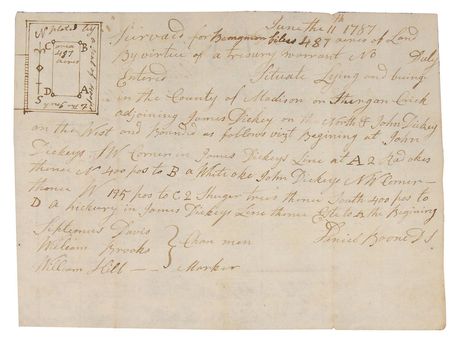 June the 11th 1787
Survaid for Bengmon 487 acres of Land
By virtue of a tresury warrant No Duly
Entered Situate Lying and being
in the County of Madison on Creek
adjoining James Dickey on the North & John Dickey
on the West and Bounde as follows vizt Begining at John
Dickeys SW Corner in James Dickeys Line at A 2 Rad okes
thence N 400 pos to B a White oke John Dickeys NW Corner
thence W 195 pos to C 2 Shuger trees thence South 400 pos to
D a hickury in James Dickeys Line thence E to the Begining
Septemus Davis
William Brooks } Chan men
William Hill — — Marker
Daniel Boone D S
N
C B
area
487
acres
D A
S